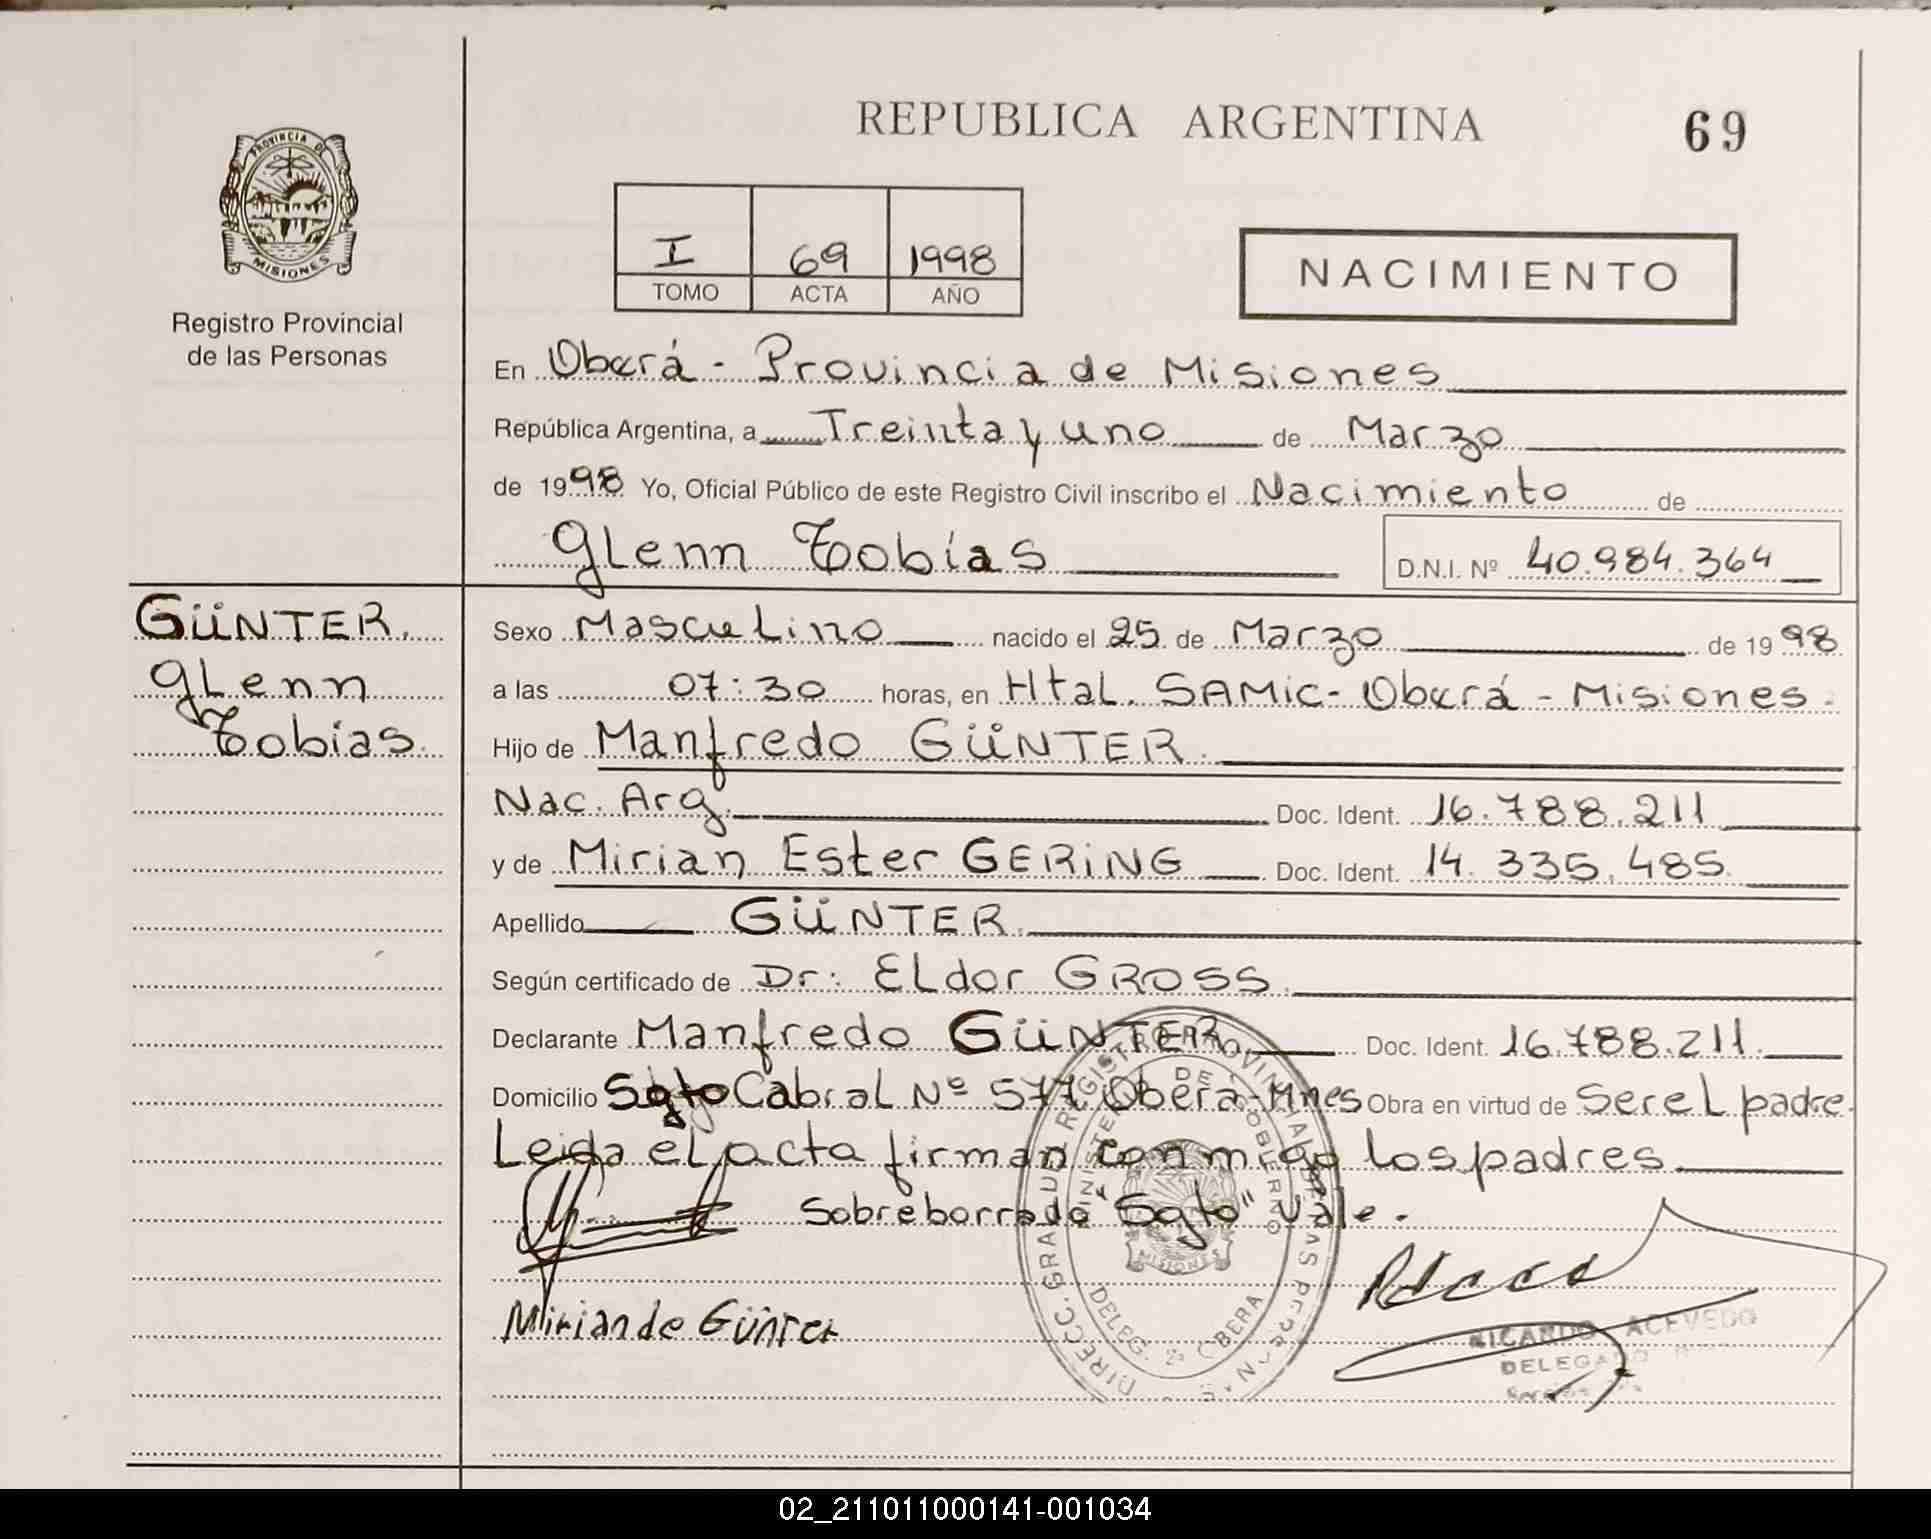 REPUBLICA ARGENTINA
69
PROVINCIA DE
MISIONES
Registro Provincial
de las Personas
I 69 1998
TOMO ACTA AÑO
NACIMIENTO
En Oberá - Provincia de Misiones
República Argentina, a Treinta y uno de Marzo
de 1998 Yo, Oficial Público de este Registro Civil inscribo el Nacimiento de
Glenn Tobías
D.N.I. Nº 40.984.364
GÜNTER.
Glenn
Tobías.
Sexo Masculino nacido el 25 de Marzo de 1998
a las 07:30 horas, en Htal. SAMIC - Oberá - Misiones.
Hijo de Manfredo GÜNTER.
Nac. Arg. Doc. Ident. 16.788.211
y de Mirian Ester GERING Doc. Ident. 14.335.485.
Apellido GÜNTER.
Según certificado de Dr: Eldor GROSS.
Declarante Manfredo GÜNTER. Doc. Ident. 16.788.211.
Domicilio Sgto Cabral Nº 577 Oberá - Mnes Obra en virtud de Ser el padre.
Leida el acta firman conmigo los padres
Sobreborrado "Sgto" Vale.
Mirian de Günter
DELEG. 2ª OBERA
MISIONES
RICARDO ACEVEDO
02_211011000141-001034